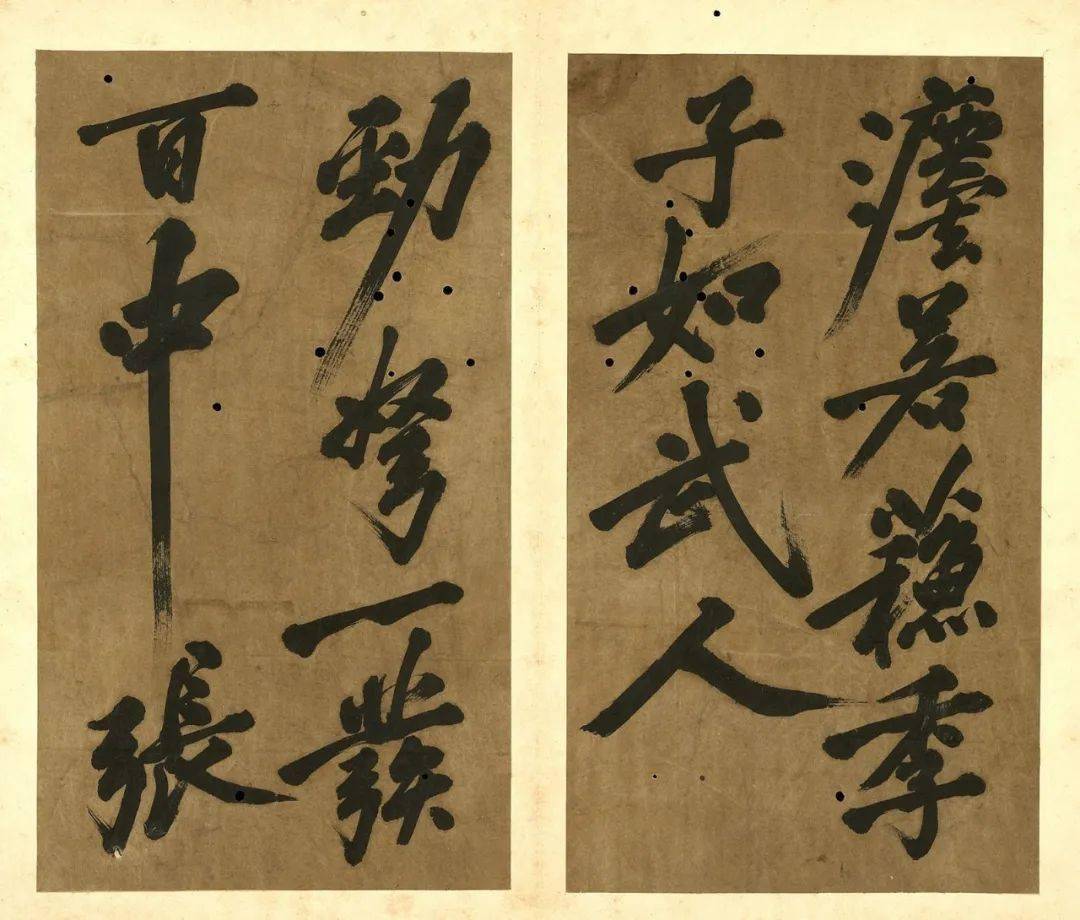 瀍若蘓季
子如武人
勁弩一發
百中張